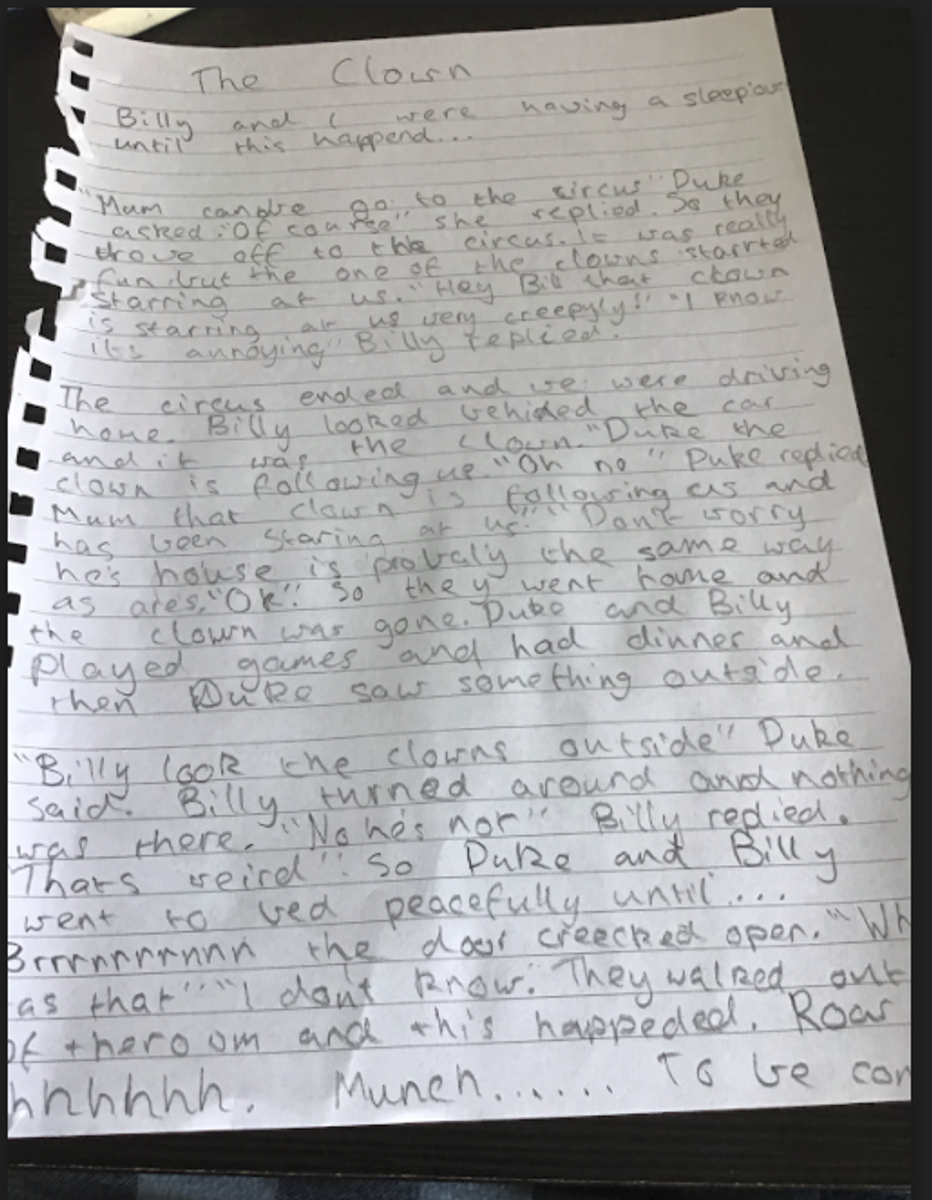 The Clown
Billy and I were having a sleepov
until this happend...
"Mum can we go to the circus" Duke
asked. "Of course" she replied. So they
drove off to the circus. It was really
fun but the one of the clowns starrted
starring at us. "Hey Bill that clown
is starring at us very creepyly!" "I know
its annoying" Billy replied.
The circus ended and we were driving
home. Billy looked behided the car
and it was the clown. "Duke the
clown is following us. "Oh no" Duke replied
Mum that clown is following us and
has been staring at us." "Don't worry
he's house is probaly the same way
as ares. "Ok". So they went home and
the clown was gone. Duke and Billy
played games and had dinner and
then Duke saw something outside.
"Billy look the clowns outside" Duke
said. Billy turned around and nothing
was there. "No he's not" Billy replied.
Thats weird". So Duke and Billy
went to bed peacefully until...
Brrrrnrrrnnn the door creecked open. "Wh
as that" "I don't know". They walked out
of theroom and this happeded. Roar
hhhhhhh. Munch...... To be con